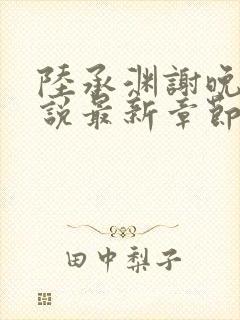 陸承渊謝晚
說最新章節
田中梨子